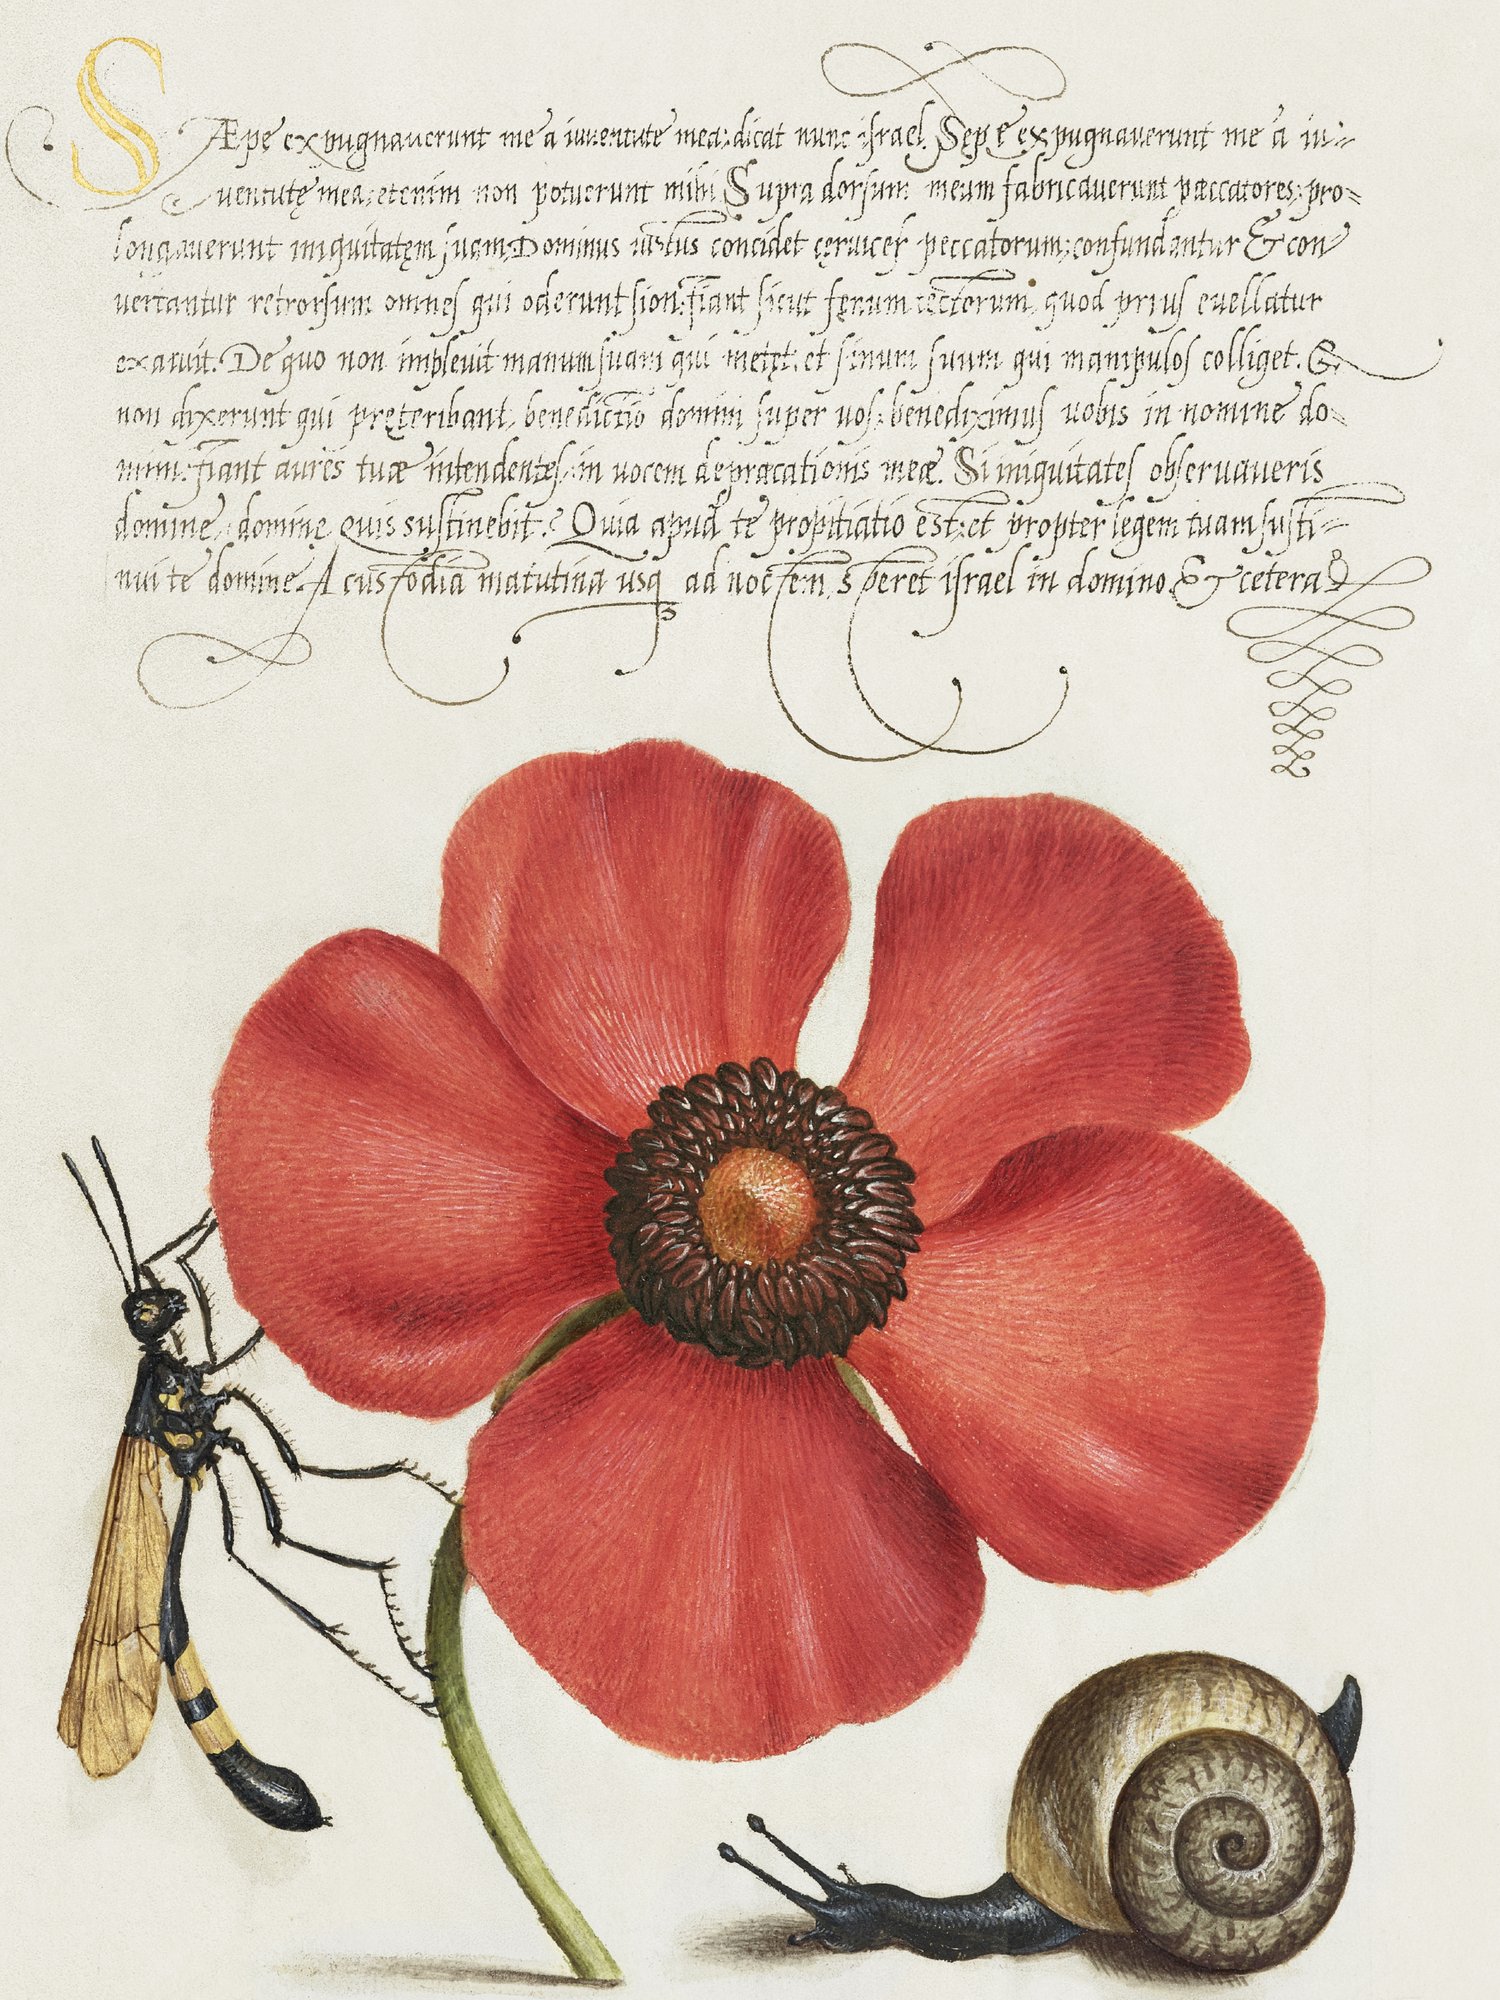 SÆpe expugnaverunt me a iuventute mea: dicat nunc israel. Sepe expugnaverunt me a iu-
ventutę mea: etenim non potuerunt mihi Supra dorsum meum fabricaverunt pæccatores: pro-
longaverunt iniquitatęm suam Dominus iustus concidet cęrvices peccatorum: confundantur & con
vertantur retrorsum omnes qui oderunt sion: fiant sicut fęnum tectorum, quod prius evellatur
exaruit. De quo non implevit manum suam qui metęt: et sinum suum qui manipulos colliget. &
non dixerunt qui pręteribant, benedictio domini super vos: benediximus vobis in nomine do-
mini: fiant aures tuæ intendentes, in vocem depræcationis meæ. Si iniquitates observaveris
domine, domine quis sustinebit? Quia apud te propitiatio est: et propter legem tuam susti-
nui te domine. A custodia matutina usq ad noctem, speret israel in domino. & cetera